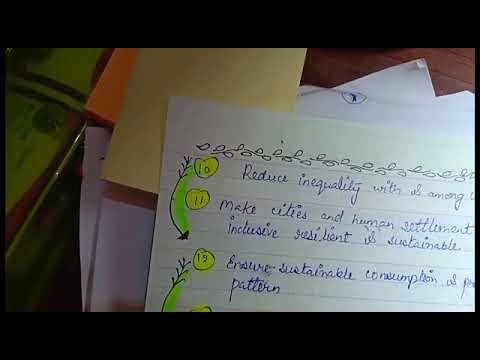 10 Reduce inequality with is among
11 Make cities and human settlement
inclusive resilient is sustainable
12 Ensure sustainable consumption is
pattern